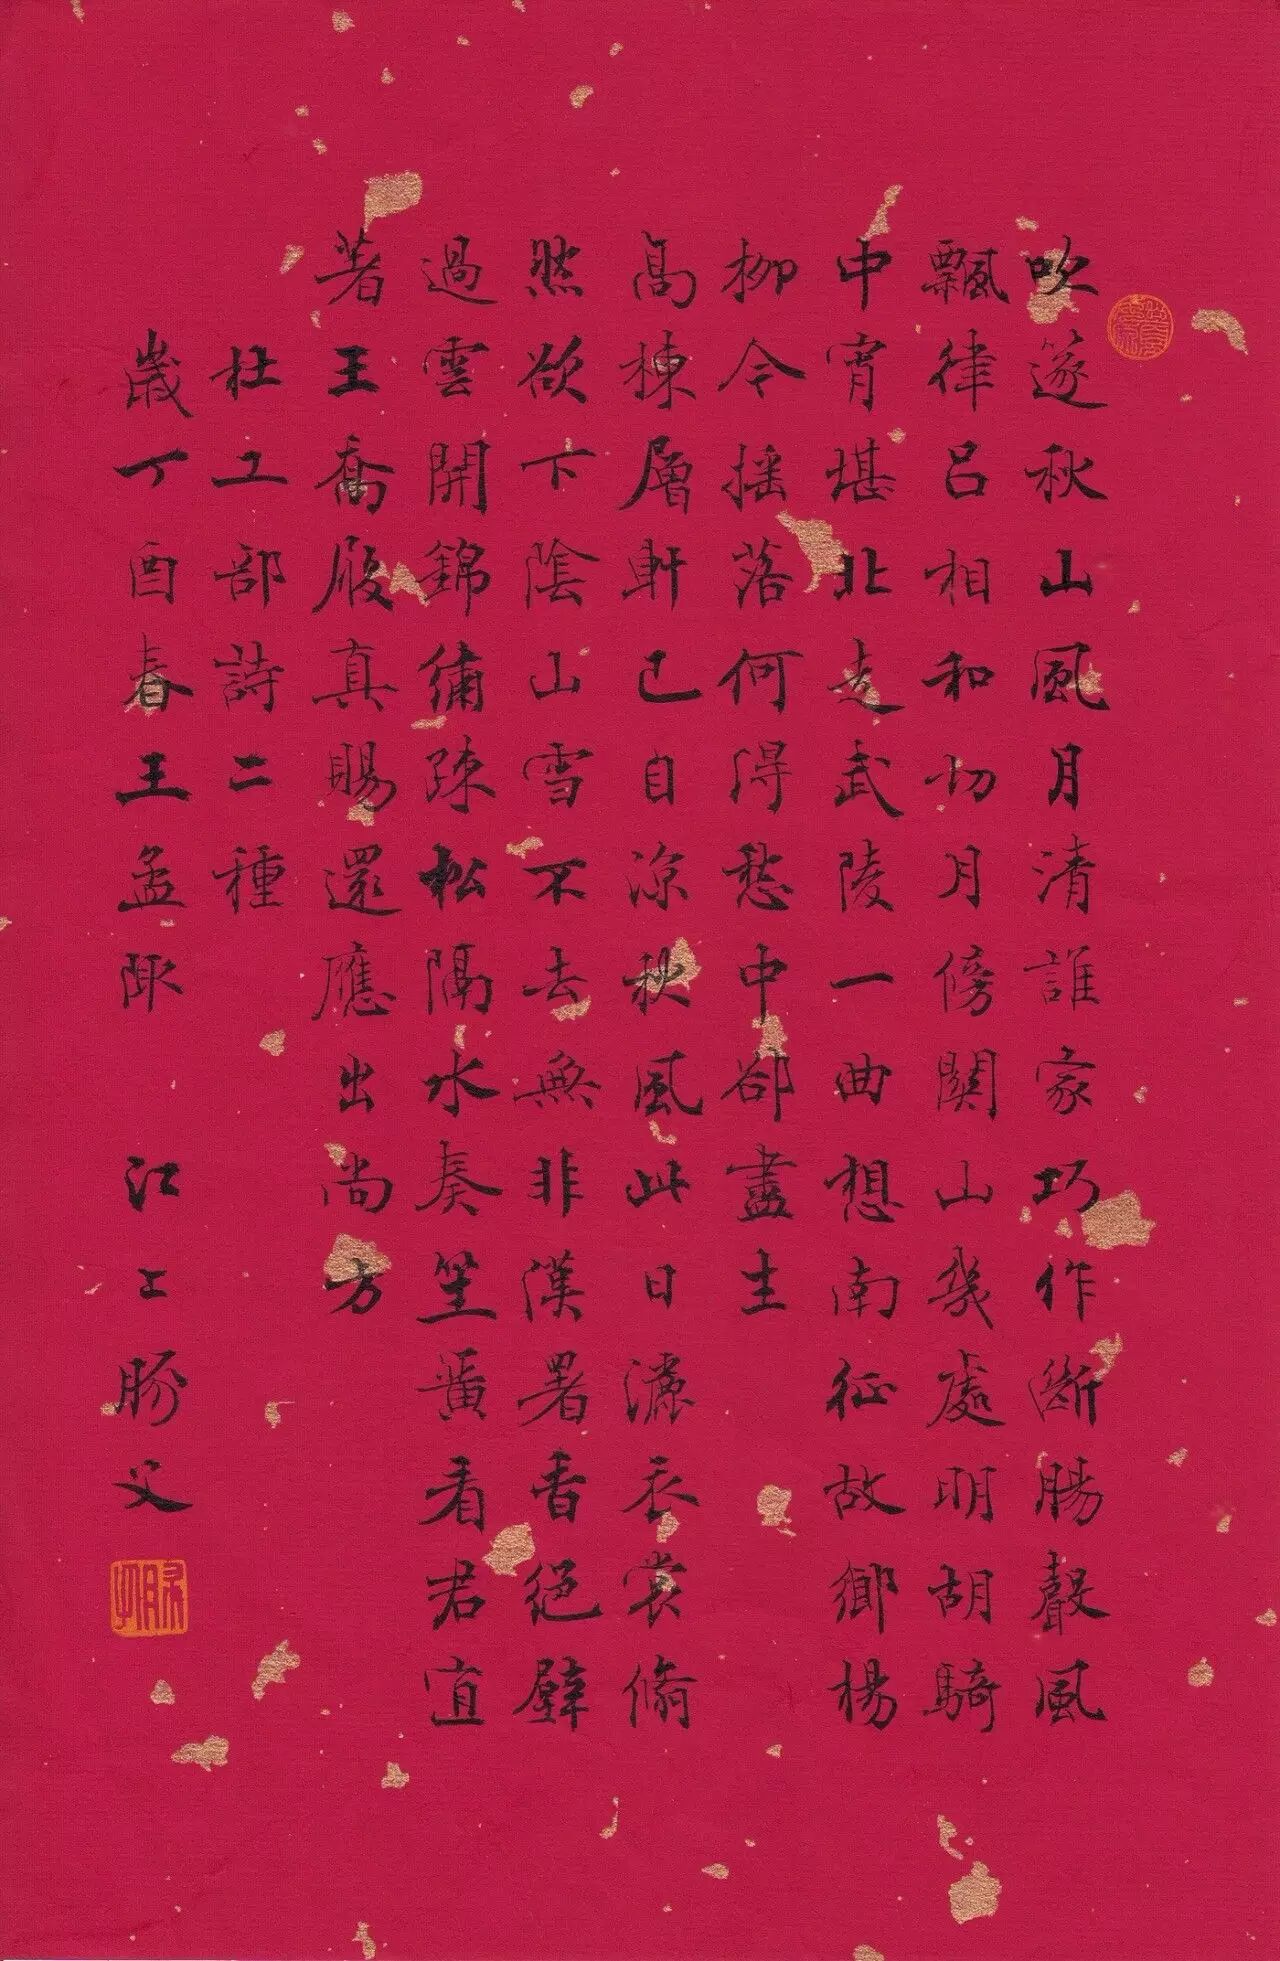 吹篴秋山風月清誰家巧作斷腸聲風
飄律呂相和切月傍關山幾處明胡騎
中宵堪北走武陵一曲想南征故鄉楊
柳今搖落何得愁中卻盡生
高棟層軒已自涼秋風此日灑衣裳翛
然欲下陰山雪不去無非漢署香絕壁
過雲開錦繡疎松隔水奏笙簧看君宜
著王喬履真賜還應出尚方
杜工部詩二種
歲丁酉春王孟陬 江上父